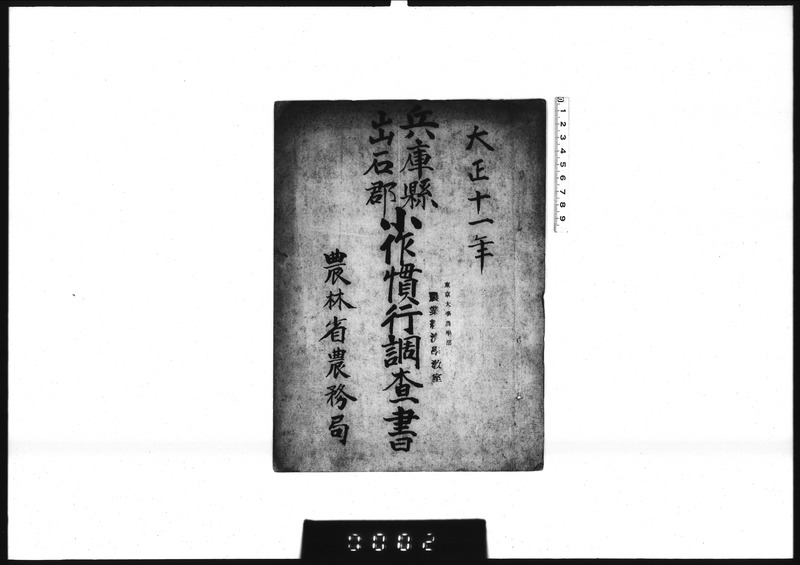 大正十一年
東京大学農学部
農業経済学教室
兵庫縣
出石郡
小作慣行調査書
農林省農務局
0 1 2 3 4 5 6 7 8 9
0002